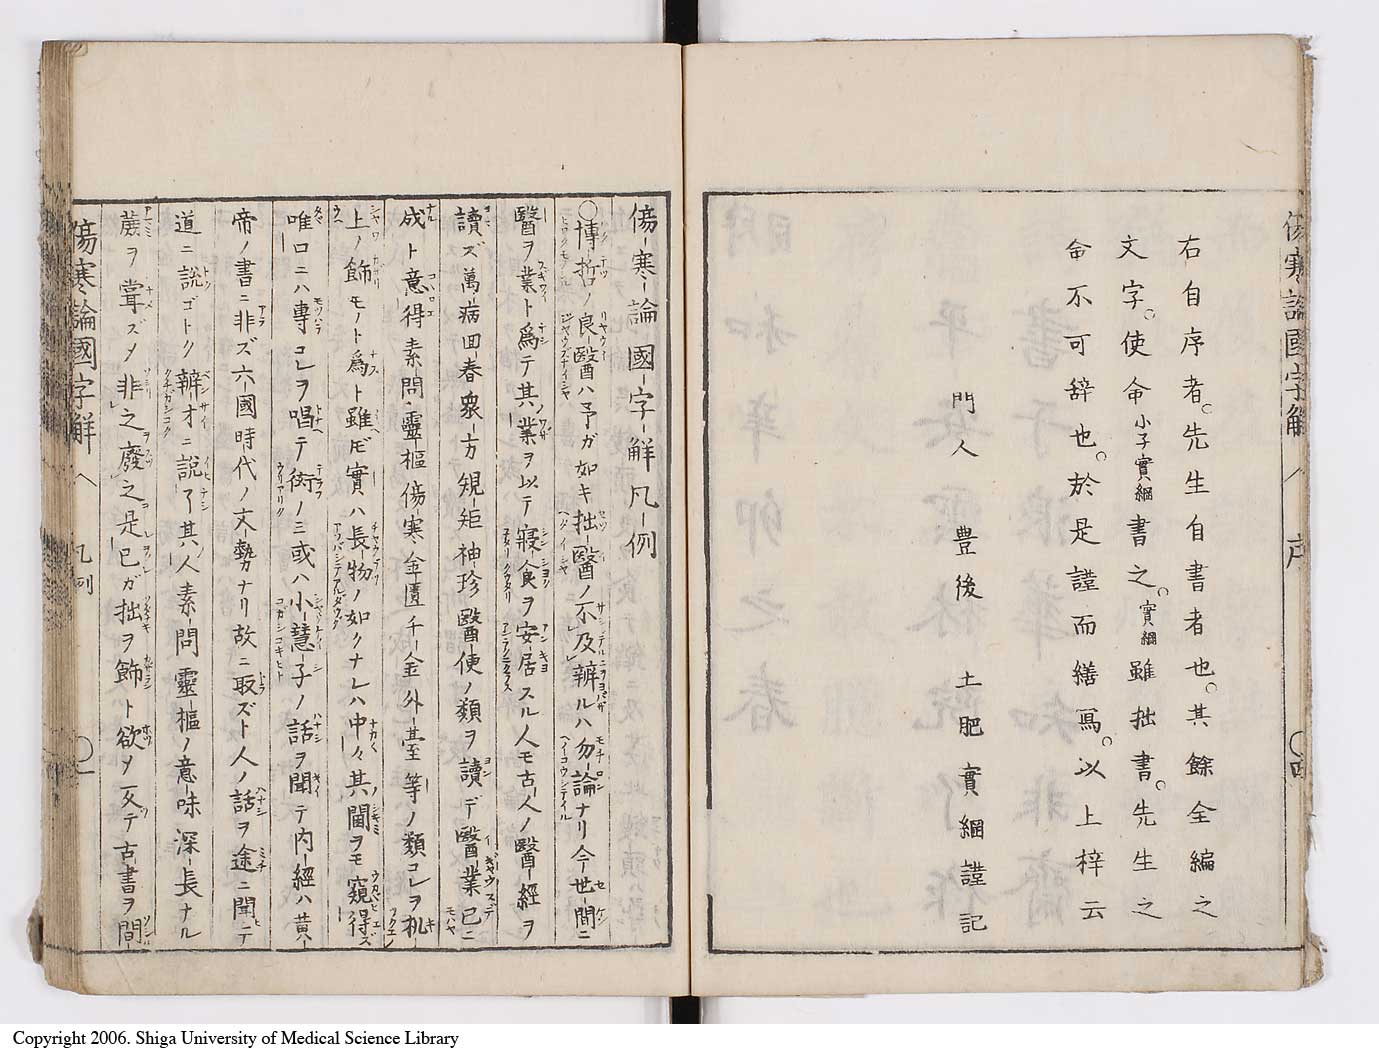 傷寒論國字解 序 〇四
右自序者。先生自書者也。其餘全編之
文字。使命小子實綱書之。實綱雖拙書。先生之
命不可辞也。於是謹而繕寫。以上梓云
門人 豊後 土肥實綱謹記
傷寒論國字解凡例
〇博哲ノ良醫ハ予ガ如キ拙醫ノ不及辨ルハ勿論ナリ今世間ニ
醫ヲ業ト爲テ其業ヲ以テ寝食ヲ安居スル人モ古人ノ醫經ヲ
讀ズ萬病回春衆方規矩神珍醫便ノ類ヲ讀デ醫業已ニ
成ト意得素問靈樞傷寒金匱千金外臺等ノ類コレヲ机
上ノ飾モノト爲ト雖ドモ實ハ長物ノ如クナレハ中々其閫ヲモ窺得ズ
唯口ニハ專コレヲ唱テ衒ノミ或ハ小慧子ノ話ヲ聞テ内經ハ黄
帝ノ書ニ非ズ六國時代ノ文勢ナリ故ニ取ズト人ノ話ヲ途ニ聞テ
道ニ説ゴトク辨才ニ説了其人素問靈樞ノ意味深長ナル
蕺ヲ甞ズメ非之廢之是已ガ拙ヲ飾ト欲ヲ反デ古書ヲ間
傷寒論國字解 凡例 〇一